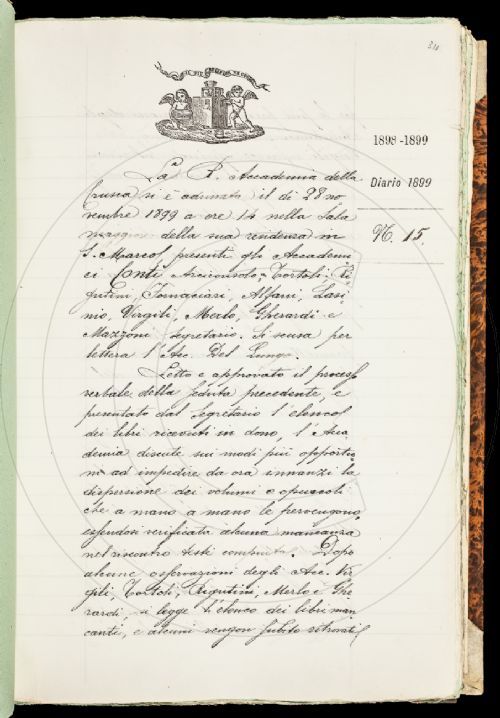 310
1898-1899
Diario 1899
N. 15.
La R. Accademia della
Crusca si è adunata il dì 28 no
vembre 1899 a ore 14 nella Sala
maggiore della sua residenza in
S. Marco, presenti gli Accademi
ci Conti Arciconsolo, Tortoli, Ri
gutini, Fornaciari, Alfani, Lasi
nio, Virgili, Merlo, Gherardi e
Mazzoni segretario. Si scusa per
lettera l'Acc. Del Lungo.
Letto e approvato il processo
verbale della seduta precedente, e
presentato dal Segretario l'elenco
dei libri ricevuti in dono, l'Acca
demia discute sui modi più opportu
ni ad impedire da ora innanzi la
dispersione dei volumi o opuscoli
che a mano a mano le pervengono,
essendosi verificata alcuna mancanza
nel riscontro testè compiuto. Dopo
alcune osservazioni degli Acc. Vir
gili, Tortoli, Rigutini, Merlo e Ghe
rardi, si legge l'elenco dei libri man
canti, e alcuni vengon subito ritrovati